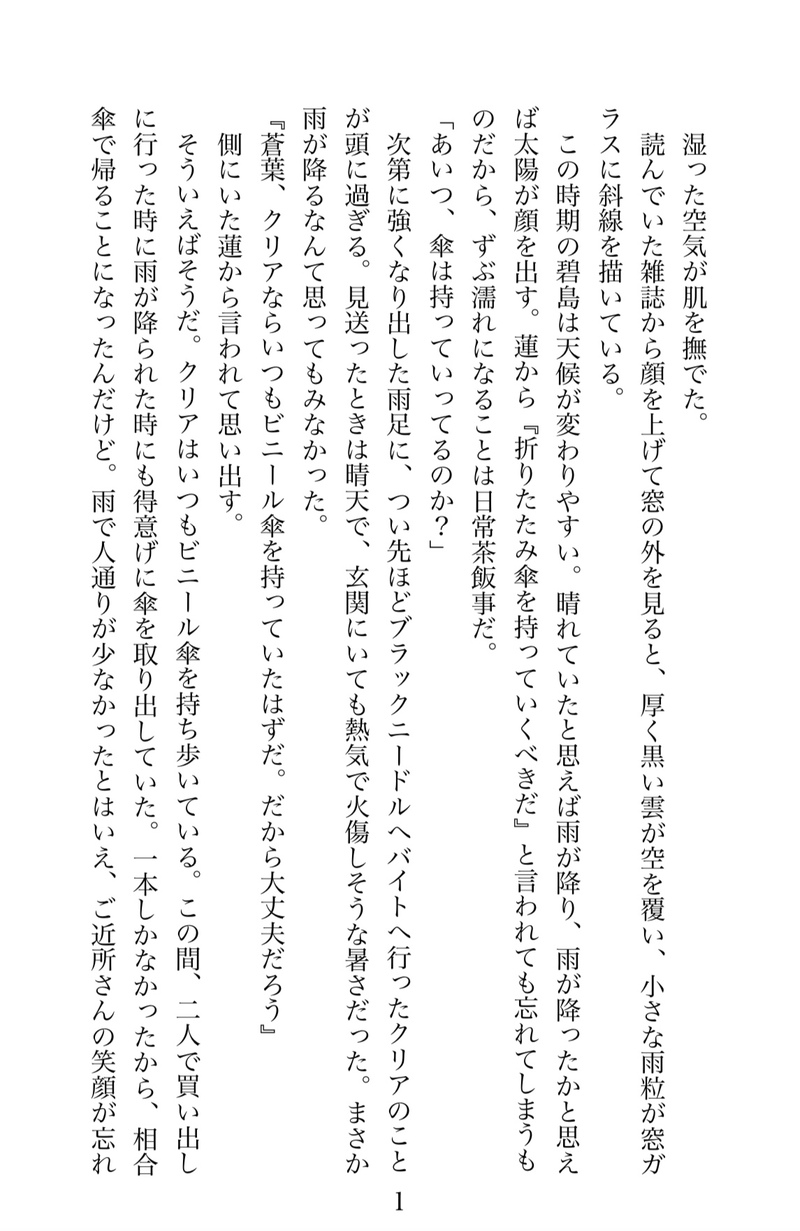 湿った空気が肌を撫でた。
　読んでいた雑誌から顔を上げて窓の外を見ると、厚く黒い雲が空を覆い、小さな雨粒が窓ガ
ラスに斜線を描いている。
　この時期の碧島は天候が変わりやすい。晴れていたと思えば雨が降り、雨が降ったかと思え
ば太陽が顔を出す。蓮から『折りたたみ傘を持っていくべきだ』と言われても忘れてしまうも
のだから、ずぶ濡れになることは日常茶飯事だ。
「あいつ、傘は持っていってるのか？」
　次第に強くなり出した雨足に、つい先ほどブラックニードルへバイトへ行ったクリアのこと
が頭に過ぎる。見送ったときは晴天で、玄関にいても熱気で火傷しそうな暑さだった。まさか
雨が降るなんて思ってもみなかった。
『蒼葉、クリアならいつもビニール傘を持っていたはずだ。だから大丈夫だろう』
　側にいた蓮から言われて思い出す。
　そういえばそうだ。クリアはいつもビニール傘を持ち歩いている。この間、二人で買い出し
に行った時に雨が降られた時にも得意げに傘を取り出していた。一本しかなかったから、相合
傘で帰ることになったんだけど。雨で人通りが少なかったとはいえ、ご近所さんの笑顔が忘れ
1